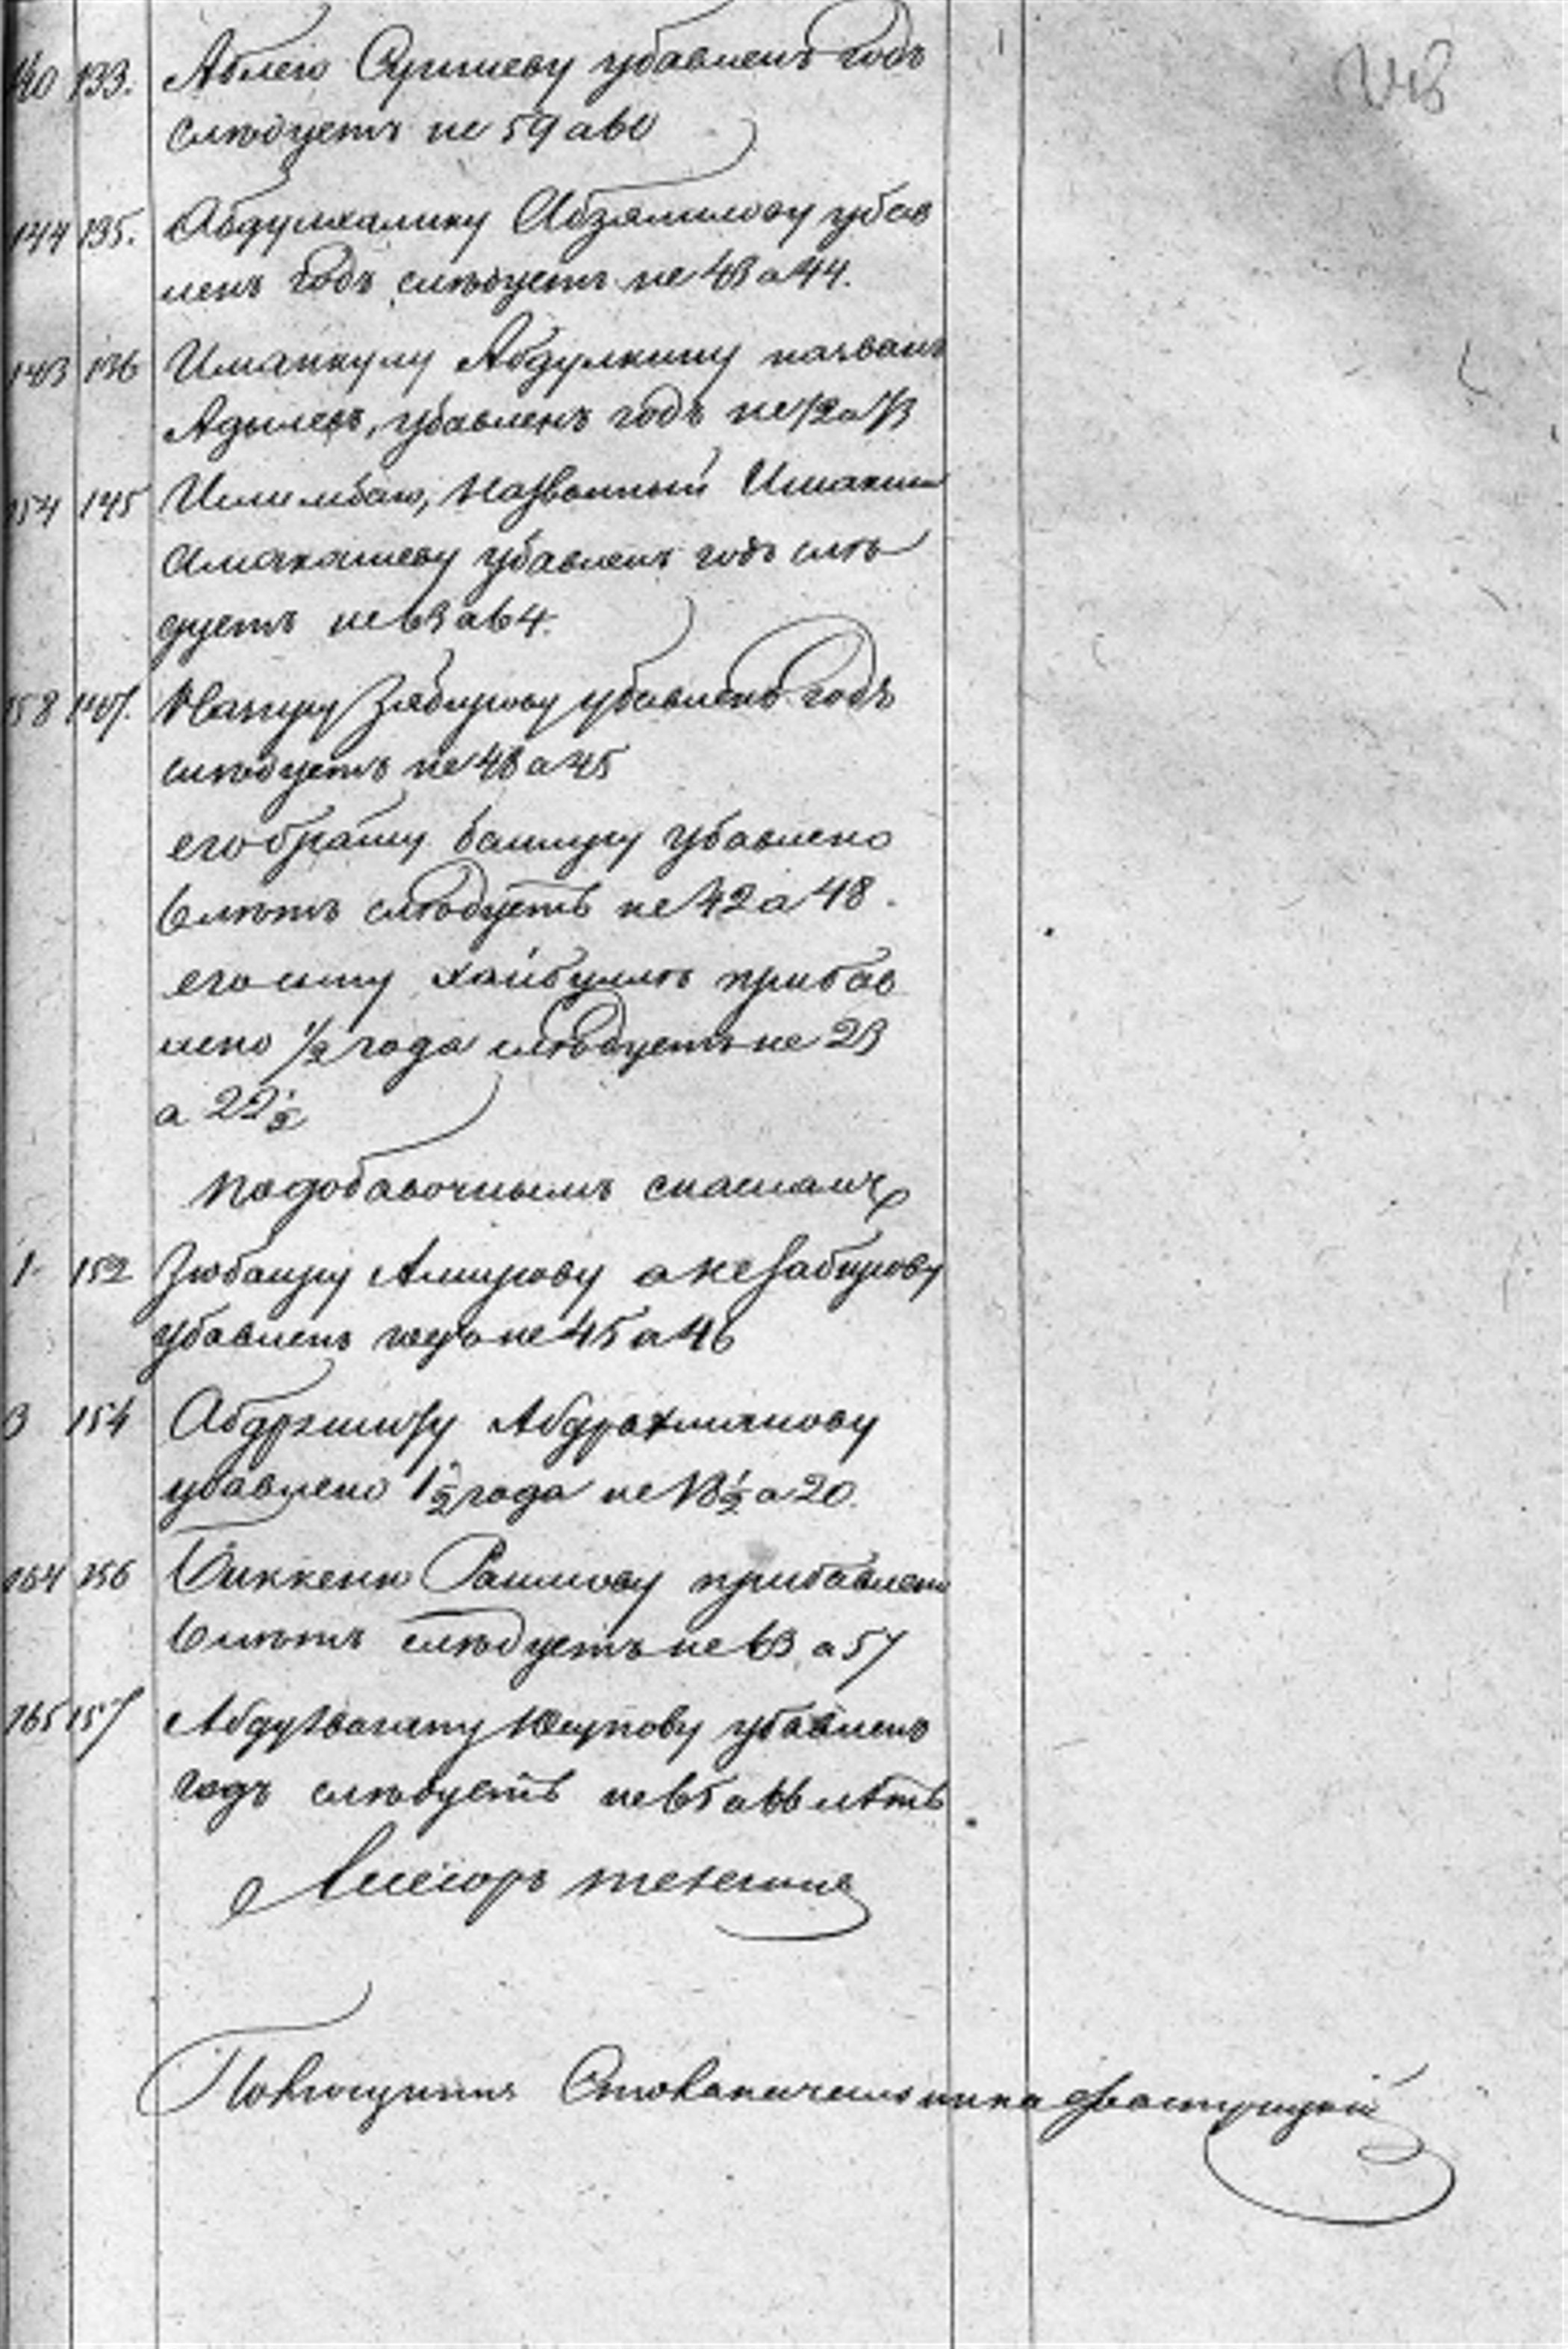 140 133. Аблею Суяшеву убавленъ годъ
слѣдуетъ не 59 а 60
144 135. Абдулхалику Абзялилову убав
ленъ годъ слѣдуетъ не 43 а 44.
143 136 Иманкулу Абдулкину названъ
Адылевъ, убавленъ годъ не 12 а 13
154 145 Ишимбаю, названный Имакаш
Имакашеву убавленъ годъ слѣ
дуетъ не 63 а 64.
158 Зябирову убавленъ годъ
слѣдуетъ не а 45
его брату убавлено
6 лѣтъ слѣдуетъ не 42 а 48.
его сыну Хайбуллѣ прибав
лено 1/2 года слѣдуетъ не 23
а 22 1/2
по добавочнымъ сказкамъ
1. 152 Зюбаиру Амирову а не Забирову
убавленъ годъ не 45 а 46
3 154 Абдрахманову
убавлено 1 1/2 года не 18 1/2 а 20.
164 156 Биккеню прибавлено
6 лѣтъ слѣдуетъ не 63 а 57
165 157 Юсупову убавленъ
годъ слѣдуетъ не 65 а 66 лѣтъ
Ассесоръ
Помощникъ Столоначальника